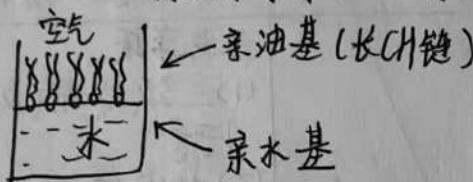 空气
亲油基(长CH链)
水
亲水基